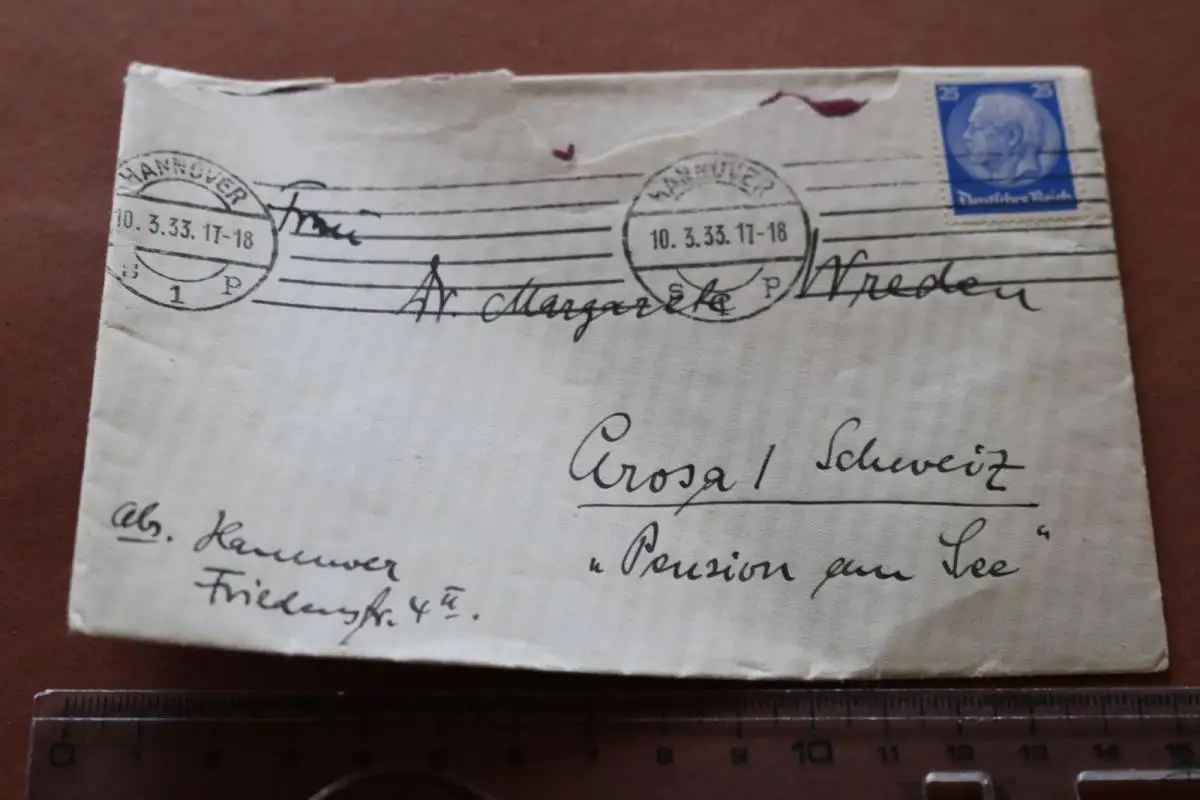 25 25
Deutsches Reich
HANNOVER
10. 3.33. 17-18
s 1 p
HANNOVER
10. 3.33. 17-18
s 1 p
Frau
Dr. Margarete Wreden
Arosa / Schweiz
„Pension am See“
Abs. Hannover
Friedenstr. 4 II.
0 1 2 3 4 5 6 7 8 9 10 11 12 13 14 15